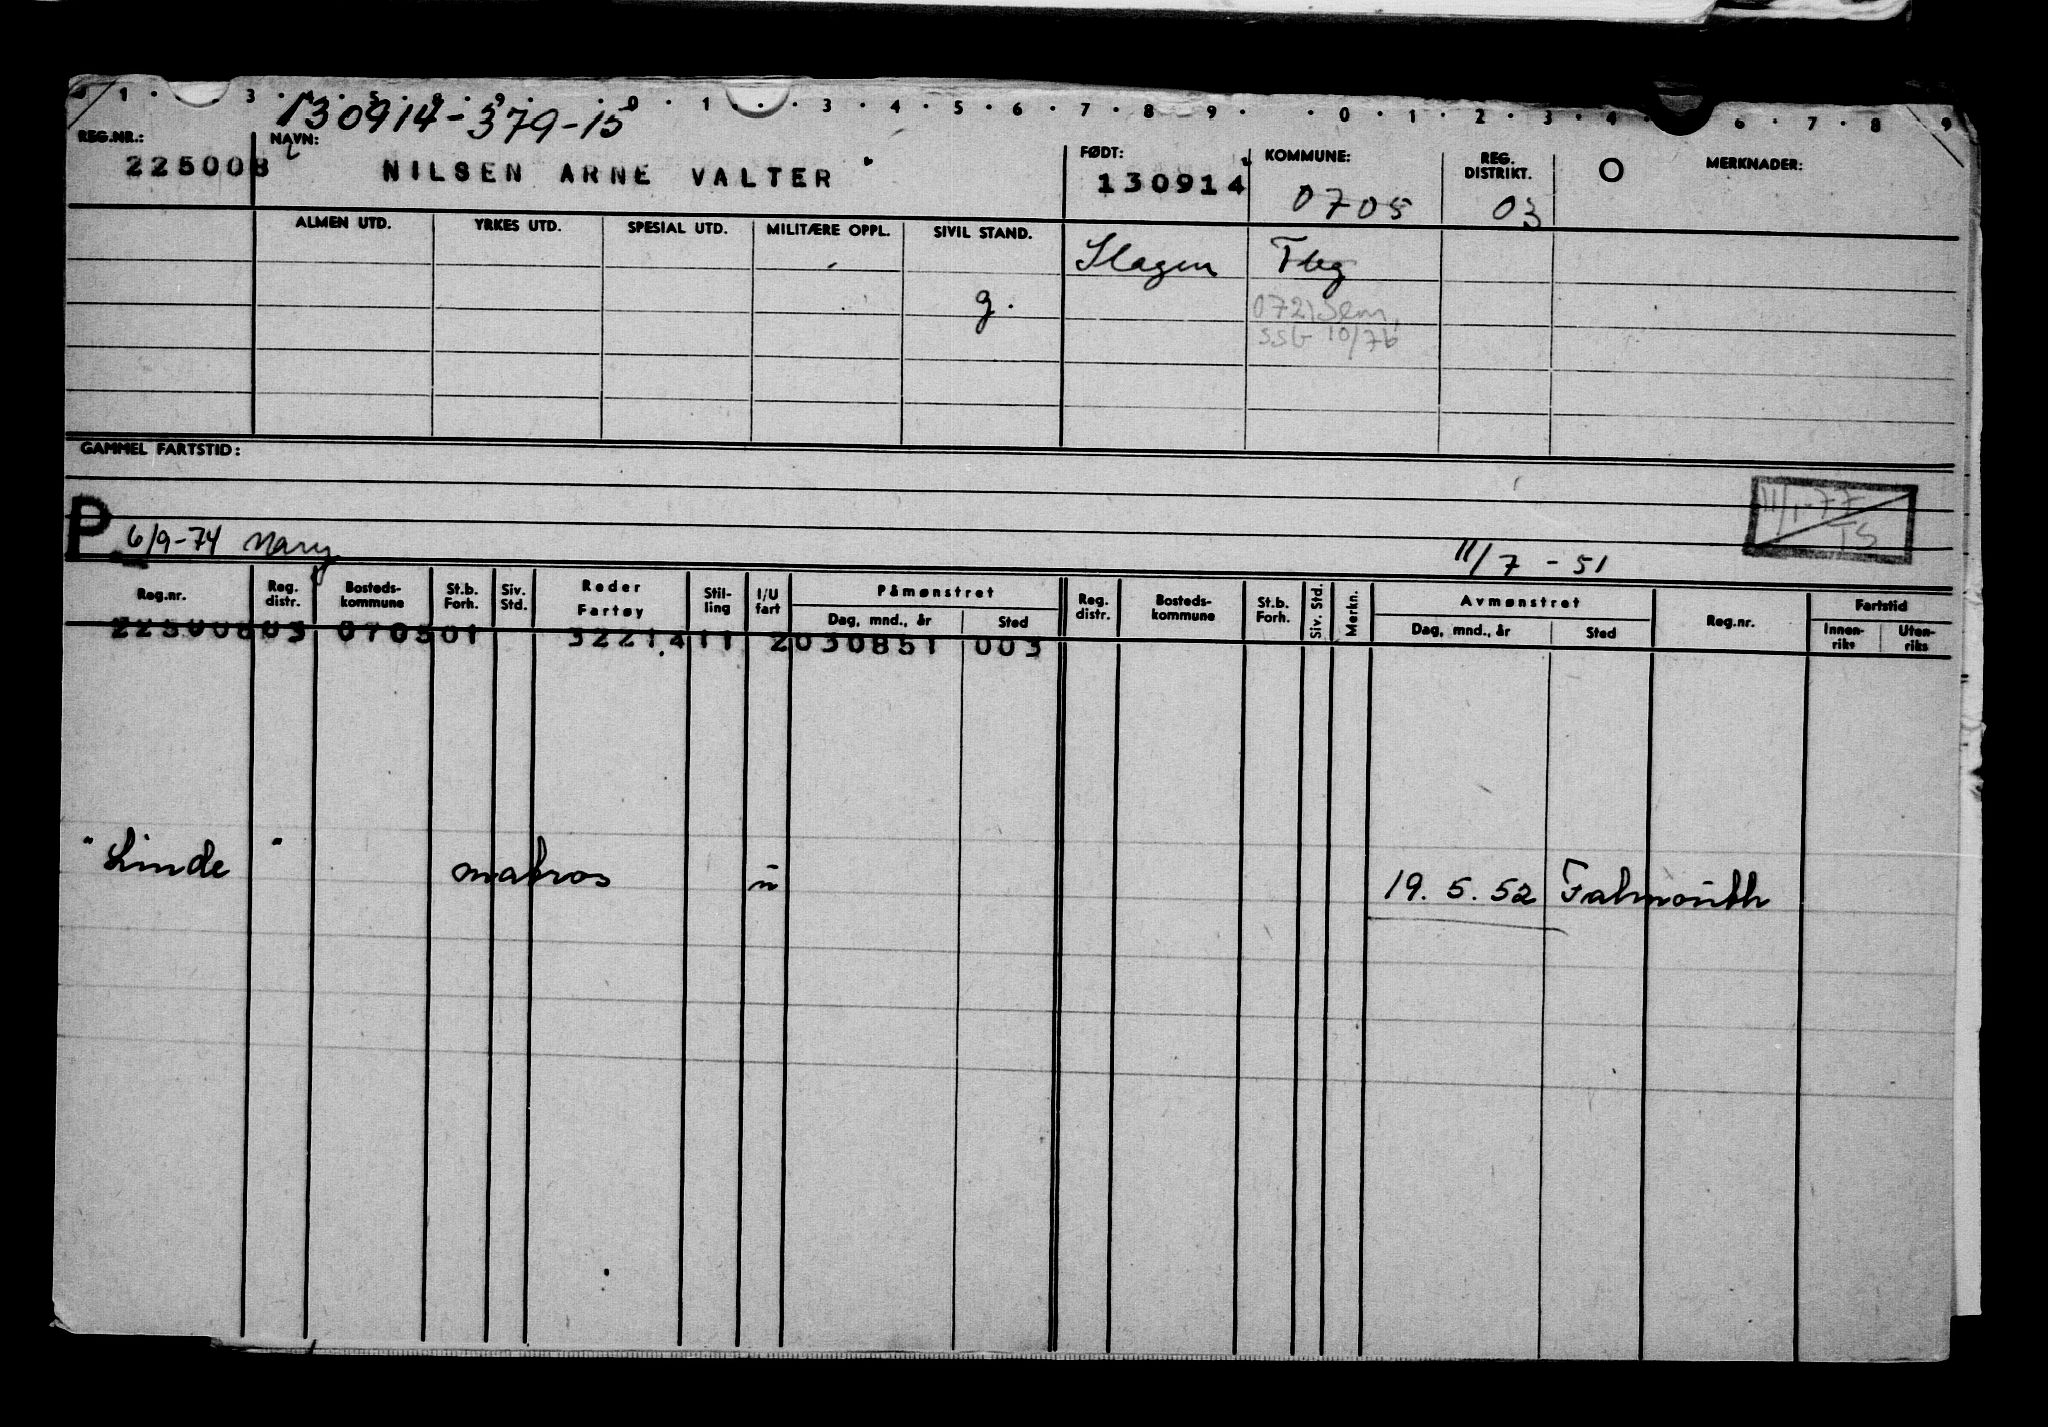 1 · 3 · 4 · 5 · 6 · 9 · · 0 · 1 · · 3 · 4 · 5 · 6 · 7 · 8 · 9 · · 0 · 1 · 2 · 3 · 4 · 6 · 7 · 8 9
130914-379-15
REG.NR.: NAVN: FØDT: KOMMUNE: REG. DISTRIKT. O MERKNADER:
225008 NILSEN ARNE VALTER 130914 0705 03
ALMEN UTD. YRKES UTD. SPESIAL UTD. MILITÆRE OPPL. SIVIL STAND.
Slagen Tbg
g. 0721 Sem,
SSB 10/76
GAMMEL FARTSTID:
11/1-77
TS
P 6/9-74 Mary 11/7 - 51
Reg.nr. Reg. distr. Bosteds-kommune St.b. Forh. Siv. Std. Reder Fartøy Stil-ling I/U fart Påmønstret Dag, mnd., år Sted Reg. distr. Bosteds-kommune St.b. Forh. Siv. Std. Merkn. Avmønstret Dag, mnd., år Sted Reg.nr. Fartstid Innen-riks Uten-riks
22500803 070501 3221411 2030851 003
"Linde" matros u 19. 5. 52 Falmouth